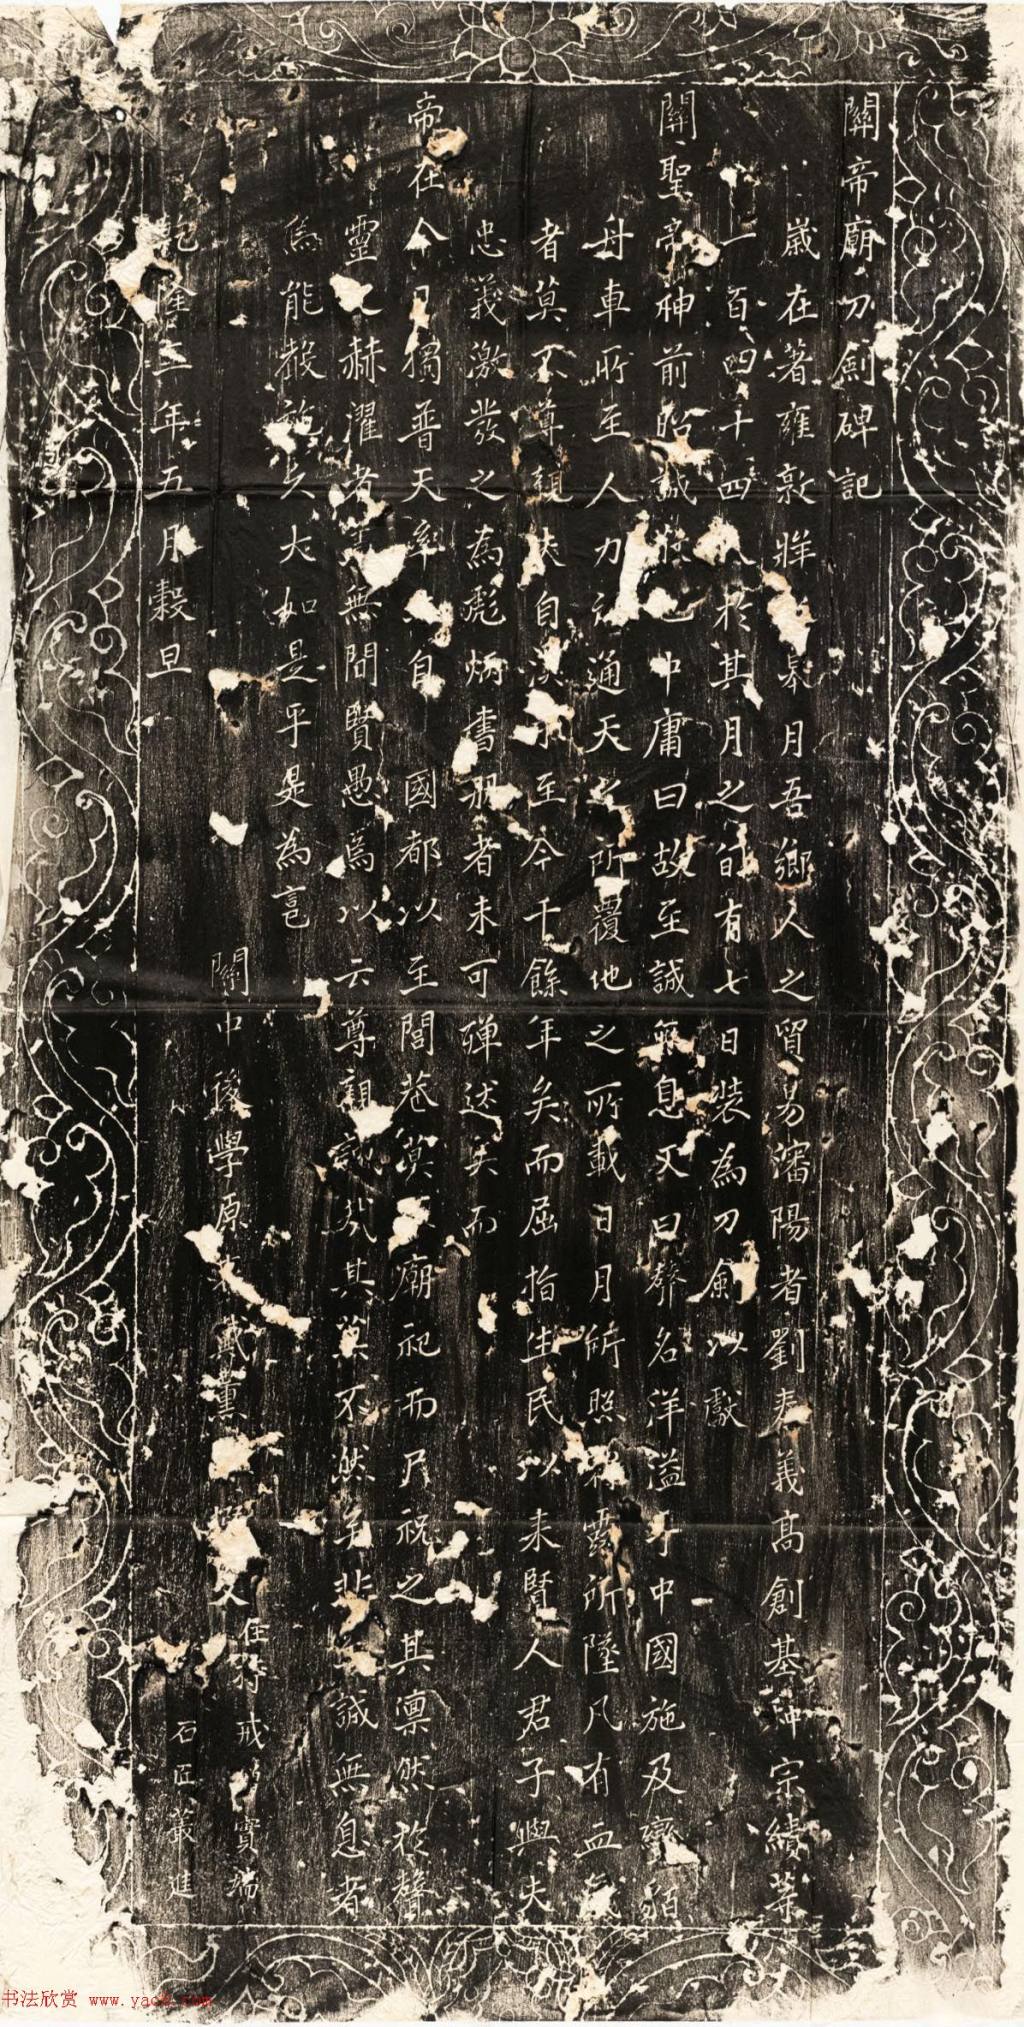 關帝廟刀劍碑記
歲在著雍敦牂皋月吾鄉人之貿易瀋陽者劉 義高創基种宗績等
一百四十四人於其月之旬有七日裝為刀劍以獻
關聖帝神前昭誠 也中庸曰故至誠無息又曰聲名洋溢于中國施及蠻貊
舟車所至人力 通天之所覆地之所載日月所照 露所墜凡有血氣
者莫不尊親 自漢 至今千餘年矣而屈指生民以來賢人君子與夫
忠義激發之為彪炳書 者未可殫述矣而
帝在今日獨普天率 自國都以至閭巷 廟祀而尸祝之其凜然於聲
靈之赫濯者 無間賢愚焉以云尊親 其莫不然矣非 誠無息者
焉能 大如是乎是為言
關中後學原 戴薰 人住持戒 實瑞
乾隆三年五月穀旦石匠叢進
书法欣赏 www.yac8.com